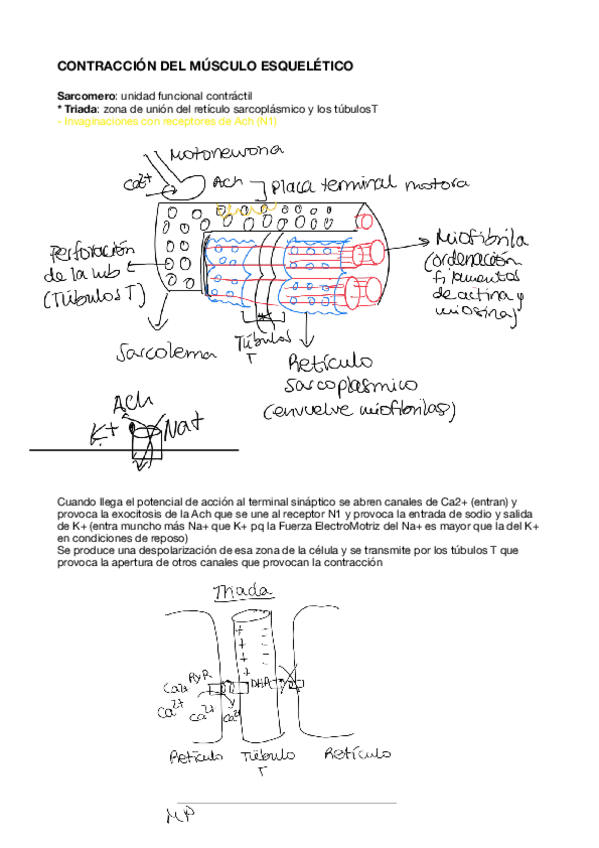 CONTRACCIÓN DEL MÚSCULO ESQUELÉTICO
Sarcomero: unidad funcional contráctil
* Triada: zona de unión del retículo sarcoplásmico y los túbulosT
- Invaginaciones con receptores de Ach (N1)
Motoneurona
Ca2+
Ach
Placa terminal motora
Perforación
de la mb
(Túbulos T)
Miofibrila
(ordenación
filamentos
de actina y
miosina)
Sarcolema
Túbulos
T
Retículo
sarcoplásmico
(envuelve miofibrilas)
Ach
K+
Na+
Cuando llega el potencial de acción al terminal sináptico se abren canales de Ca2+ (entran) y
provoca la exocitosis de la Ach que se une al receptor N1 y provoca la entrada de sodio y salida
de K+ (entra muncho más Na+ que K+ pq la Fuerza ElectroMotriz del Na+ es mayor que la del K+
en condiciones de reposo)
Se produce una despolarización de esa zona de la célula y se transmite por los túbulos T que
provoca la apertura de otros canales que provocan la contracción
Triada
RyR
Ca2+
Ca2+
Ca2+
Ca2+
Retículo
Túbulo
T
Retículo
MP